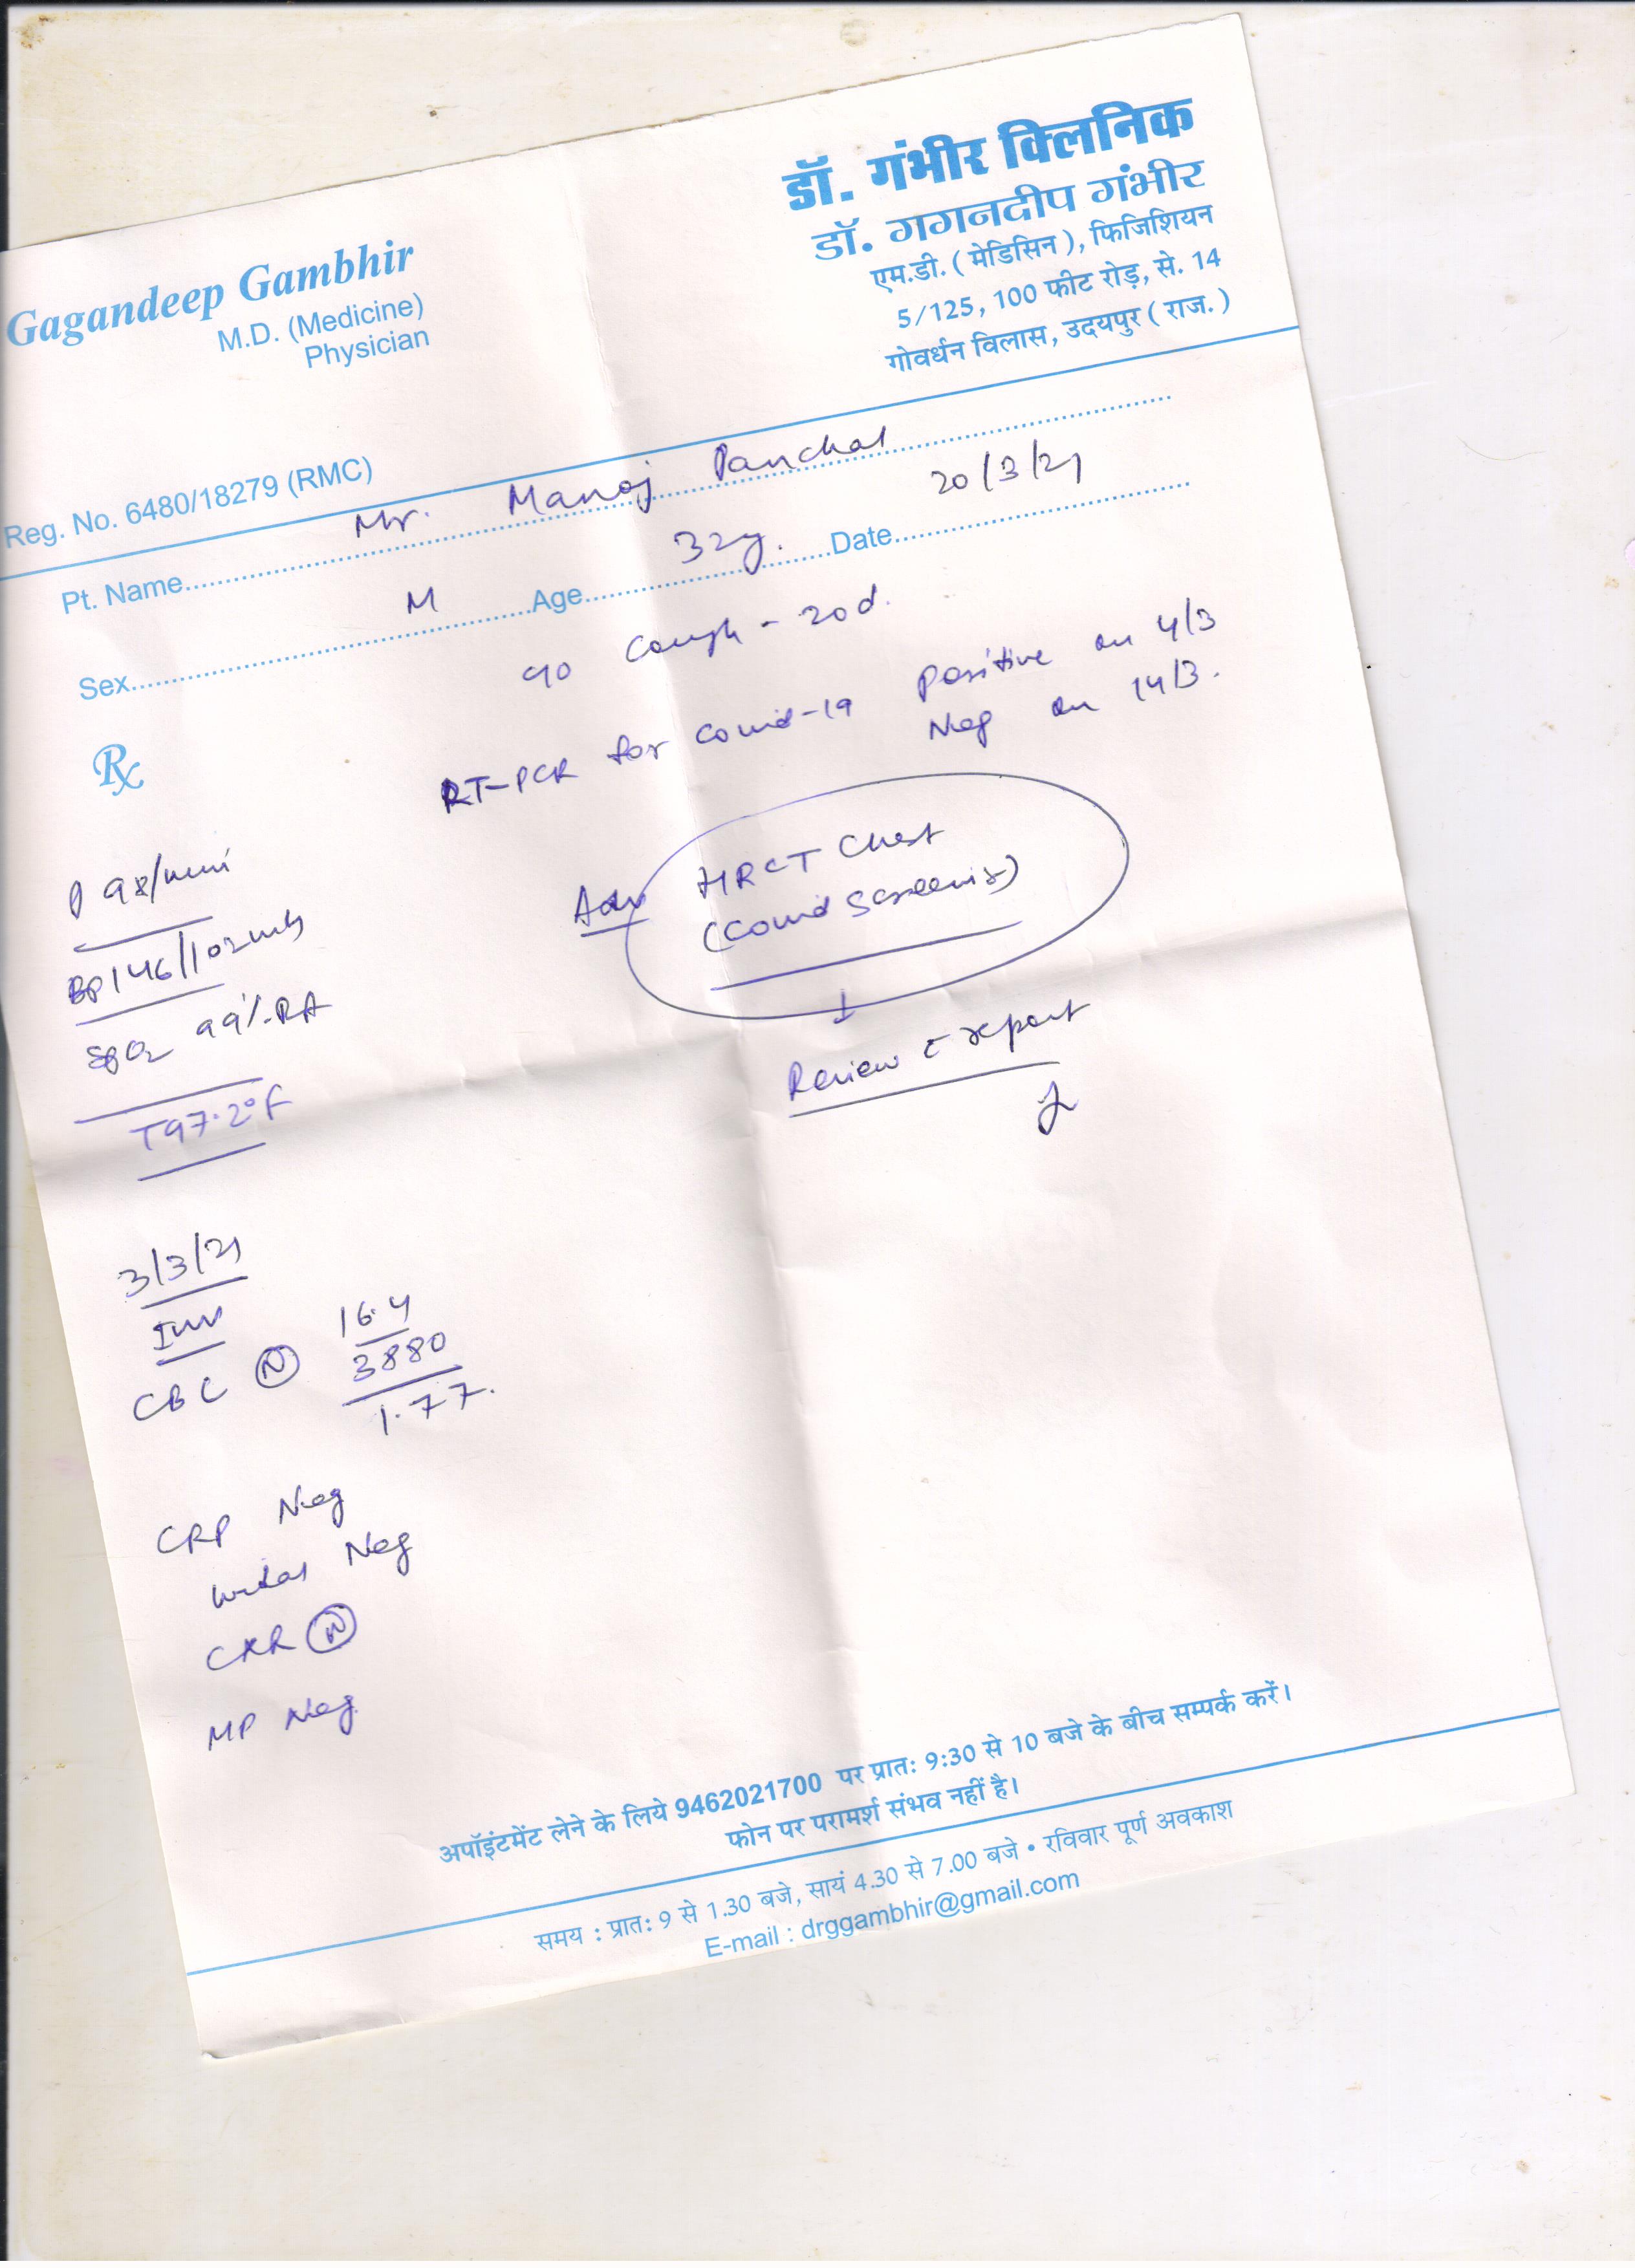 डॉ. गंभीर क्लिनिक
डॉ. गगनदीप गंभीर
एम.डी. ( मेडिसिन ), फिजिशियन
5/125, 100 फीट रोड़, से. 14
गोवर्धन विलास, उदयपुर ( राज. )
Gagandeep Gambhir
M.D. (Medicine)
Physician
Reg. No. 6480/18279 (RMC)
Pt. Name Mr. Manoj Panchal
Sex M Age 32y. Date 20/3/21
c/o Cough - 20d.
RT-PCR for Covid-19 Positive on 4/3
Neg on 14/3.
Rx
P 98/min
BP 146/102
SpO2 99% RA
T 97.2°F
Adv HRCT Chest
(Covid Screening)
↓
Review c report
3/3/21
Inv
CBC N 16.4
3880
1.77
CRP Neg
Widal Neg
CXR N
MP Neg
अपॉइंटमेंट लेने के लिये 9462021700 पर प्रात: 9:30 से 10 बजे के बीच सम्पर्क करें।
फोन पर परामर्श संभव नहीं है।
समय : प्रात: 9 से 1.30 बजे, सायं 4.30 से 7.00 बजे • रविवार पूर्ण अवकाश
E-mail : drggambhir@gmail.com